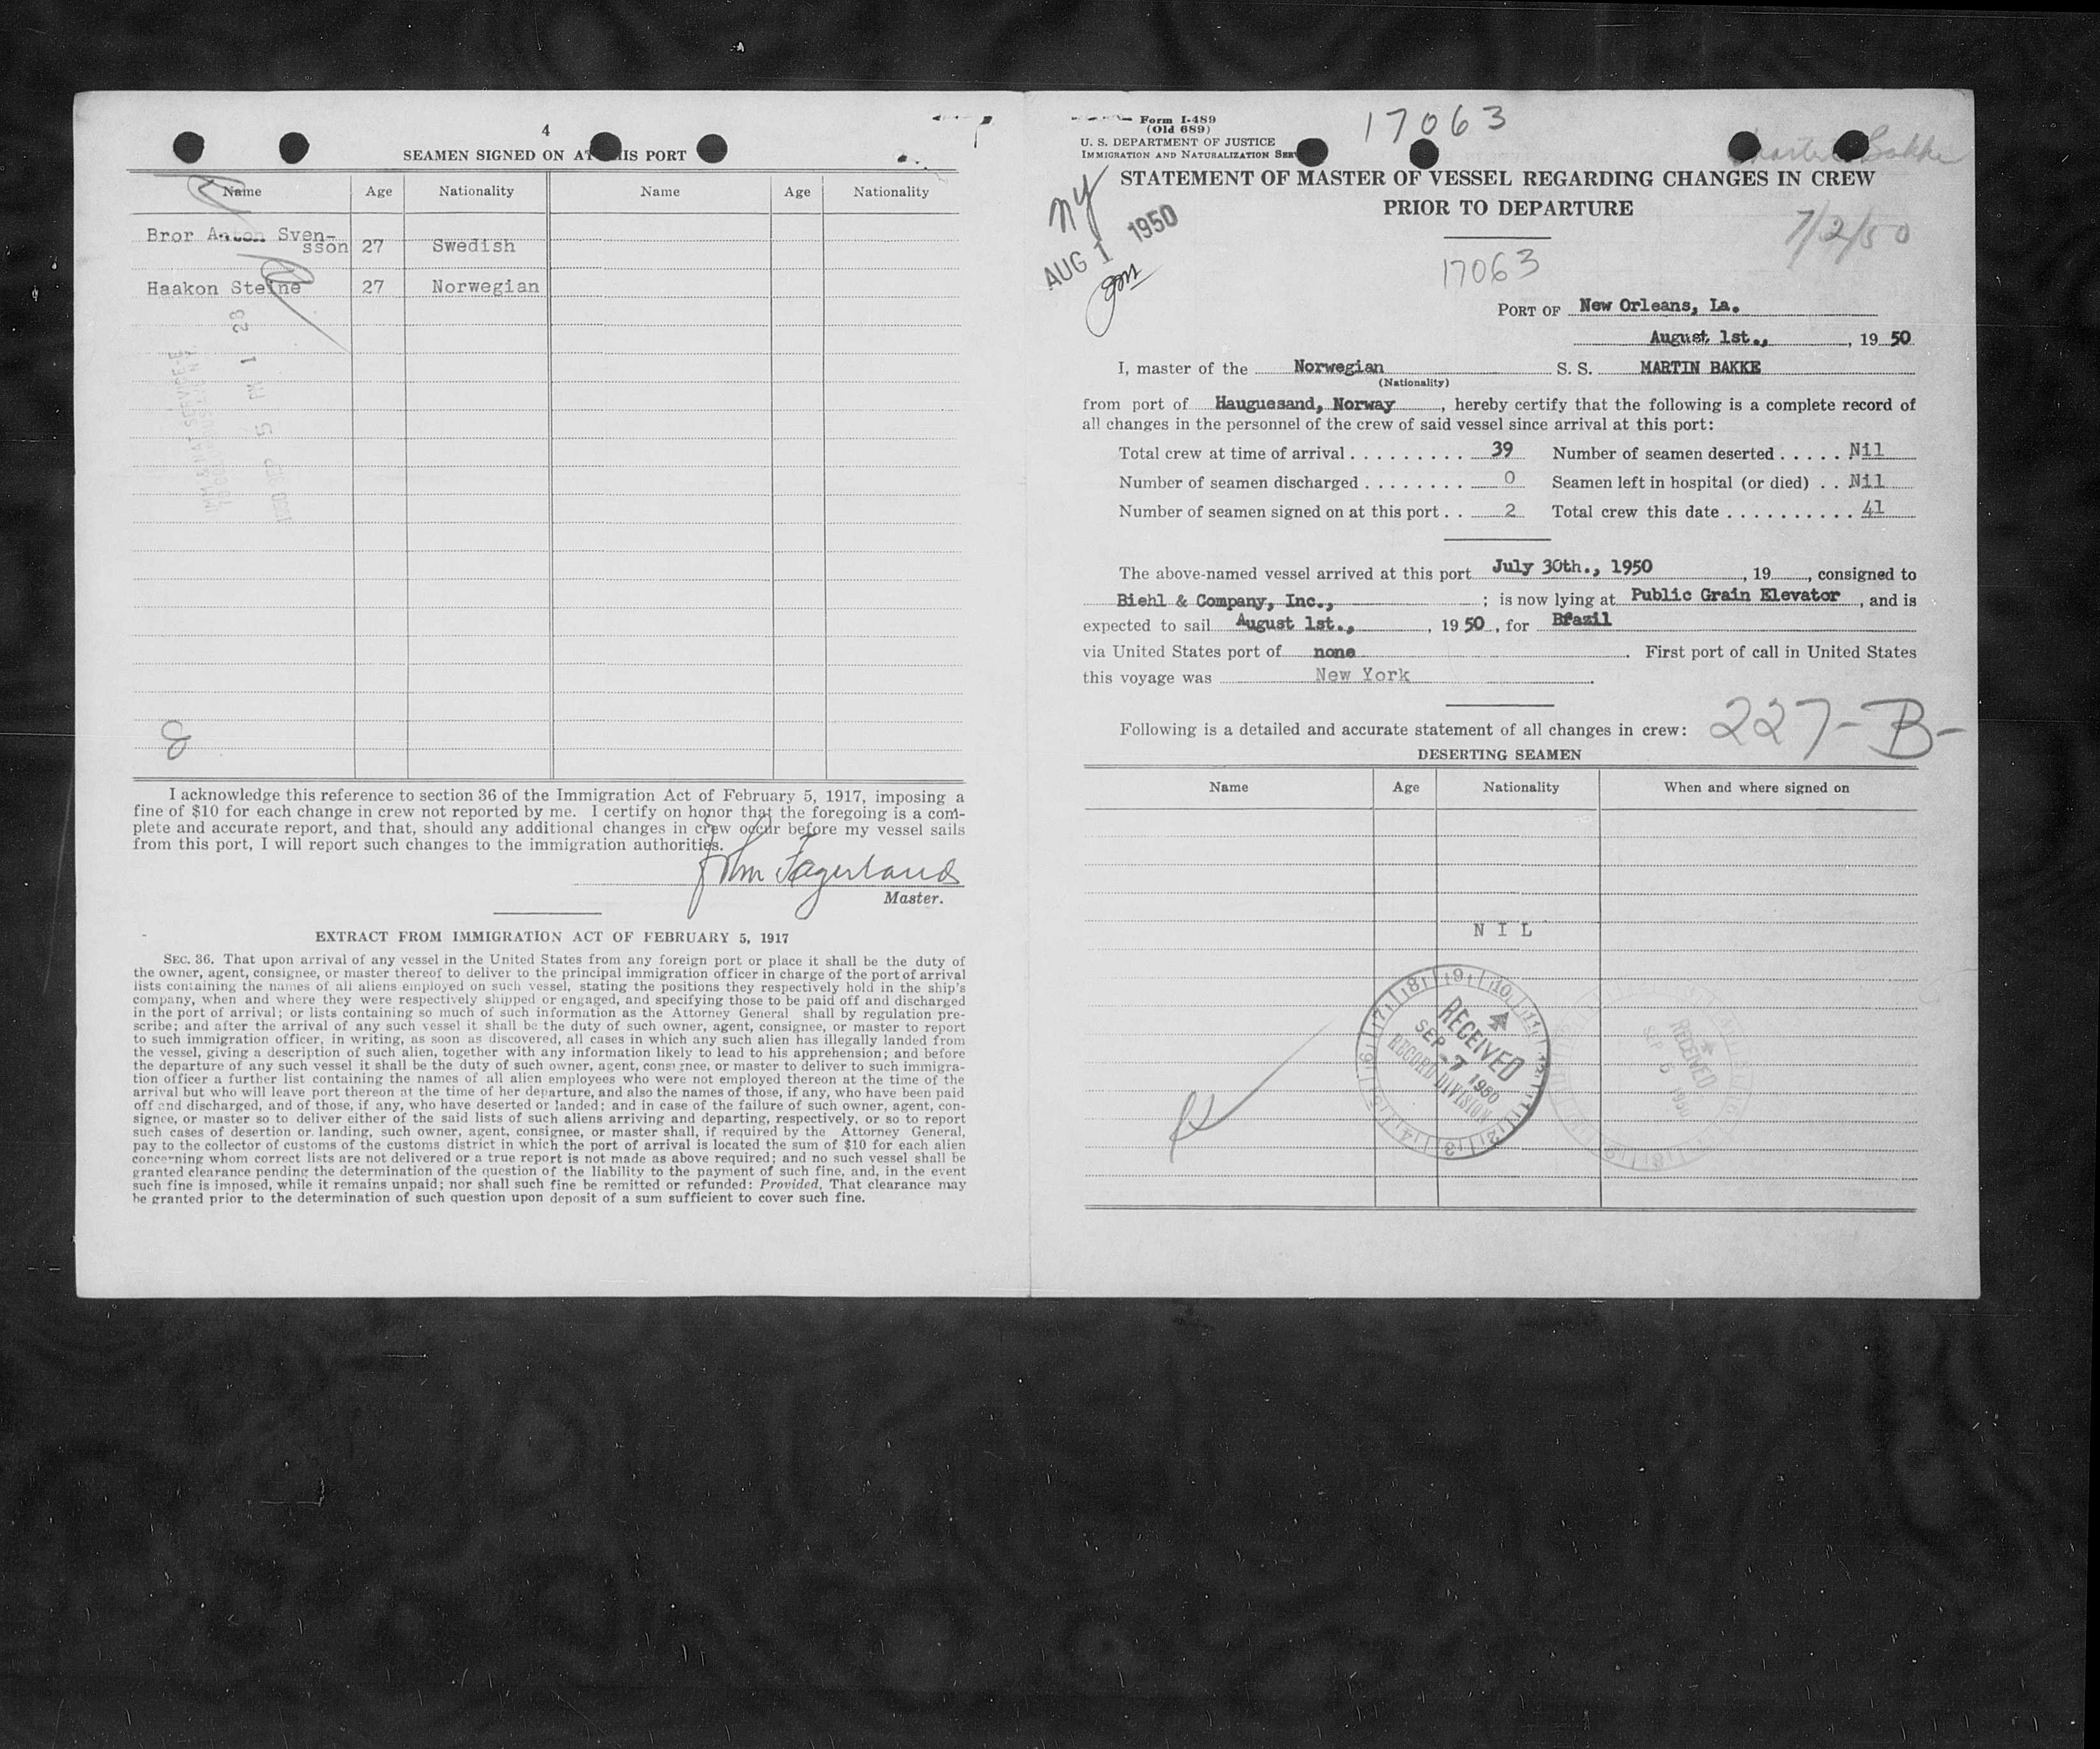 4
SEAMEN SIGNED ON AT THIS PORT
Name Age Nationality Name Age Nationality
Bror Anton Sven-
sson 27 Swedish
Haakon Steine 27 Norwegian
8
I acknowledge this reference to section 36 of the Immigration Act of February 5, 1917, imposing a
fine of $10 for each change in crew not reported by me. I certify on honor that the foregoing is a com-
plete and accurate report, and that, should any additional changes in crew occur before my vessel sails
from this port, I will report such changes to the immigration authorities.
John Fagerland
Master.
EXTRACT FROM IMMIGRATION ACT OF FEBRUARY 5, 1917
SEC. 36. That upon arrival of any vessel in the United States from any foreign port or place it shall be the duty of
the owner, agent, consignee, or master thereof to deliver to the principal immigration officer in charge of the port of arrival
lists containing the names of all aliens employed on such vessel, stating the positions they respectively hold in the ship's
company, when and where they were respectively shipped or engaged, and specifying those to be paid off and discharged
in the port of arrival; or lists containing so much of such information as the Attorney General shall by regulation pre-
scribe; and after the arrival of any such vessel it shall be the duty of such owner, agent, consignee, or master to report
to such immigration officer, in writing, as soon as discovered, all cases in which any such alien has illegally landed from
the vessel, giving a description of such alien, together with any information likely to lead to his apprehension; and before
the departure of any such vessel it shall be the duty of such owner, agent, consignee, or master to deliver to such immigra-
tion officer a further list containing the names of all alien employees who were not employed thereon at the time of the
arrival but who will leave port thereon at the time of her departure, and also the names of those, if any, who have been paid
off and discharged, and of those, if any, who have deserted or landed; and in case of the failure of such owner, agent, con-
signee, or master so to deliver either of the said lists of such aliens arriving and departing, respectively, or so to report
such cases of desertion or landing, such owner, agent, consignee, or master shall, if required by the Attorney General,
pay to the collector of customs of the customs district in which the port of arrival is located the sum of $10 for each alien
concerning whom correct lists are not delivered or a true report is not made as above required; and no such vessel shall be
granted clearance pending the determination of the question of the liability to the payment of such fine, and, in the event
such fine is imposed, while it remains unpaid; nor shall such fine be remitted or refunded: Provided, That clearance may
be granted prior to the determination of such question upon deposit of a sum sufficient to cover such fine.
Form I-489
(Old 689)
U. S. DEPARTMENT OF JUSTICE
IMMIGRATION AND NATURALIZATION SER
17063
Bakke
STATEMENT OF MASTER OF VESSEL REGARDING CHANGES IN CREW
PRIOR TO DEPARTURE
NY
AUG 1 1950
7/2/50
17063
PORT OF New Orleans, La.
August 1st., , 19 50
I, master of the Norwegian S. S. MARTIN BAKKE
(Nationality)
from port of Hauguesand, Norway , hereby certify that the following is a complete record of
all changes in the personnel of the crew of said vessel since arrival at this port:
Total crew at time of arrival . . . . . . . . . 39 Number of seamen deserted . . . . . Nil
Number of seamen discharged . . . . . . . . 0 Seamen left in hospital (or died) . . Nil
Number of seamen signed on at this port . . 2 Total crew this date . . . . . . . . . . 41
The above-named vessel arrived at this port July 30th., 1950 , 19 , consigned to
Biehl & Company, Inc., ; is now lying at Public Grain Elevator , and is
expected to sail August 1st., , 19 50 , for Brazil
via United States port of none . First port of call in United States
this voyage was New York .
Following is a detailed and accurate statement of all changes in crew: 227-B-
DESERTING SEAMEN
Name Age Nationality When and where signed on
N I L
RECEIVED
SEP -7 1950
RECORD DIVISION
RECEIVED
SEP 5 1950